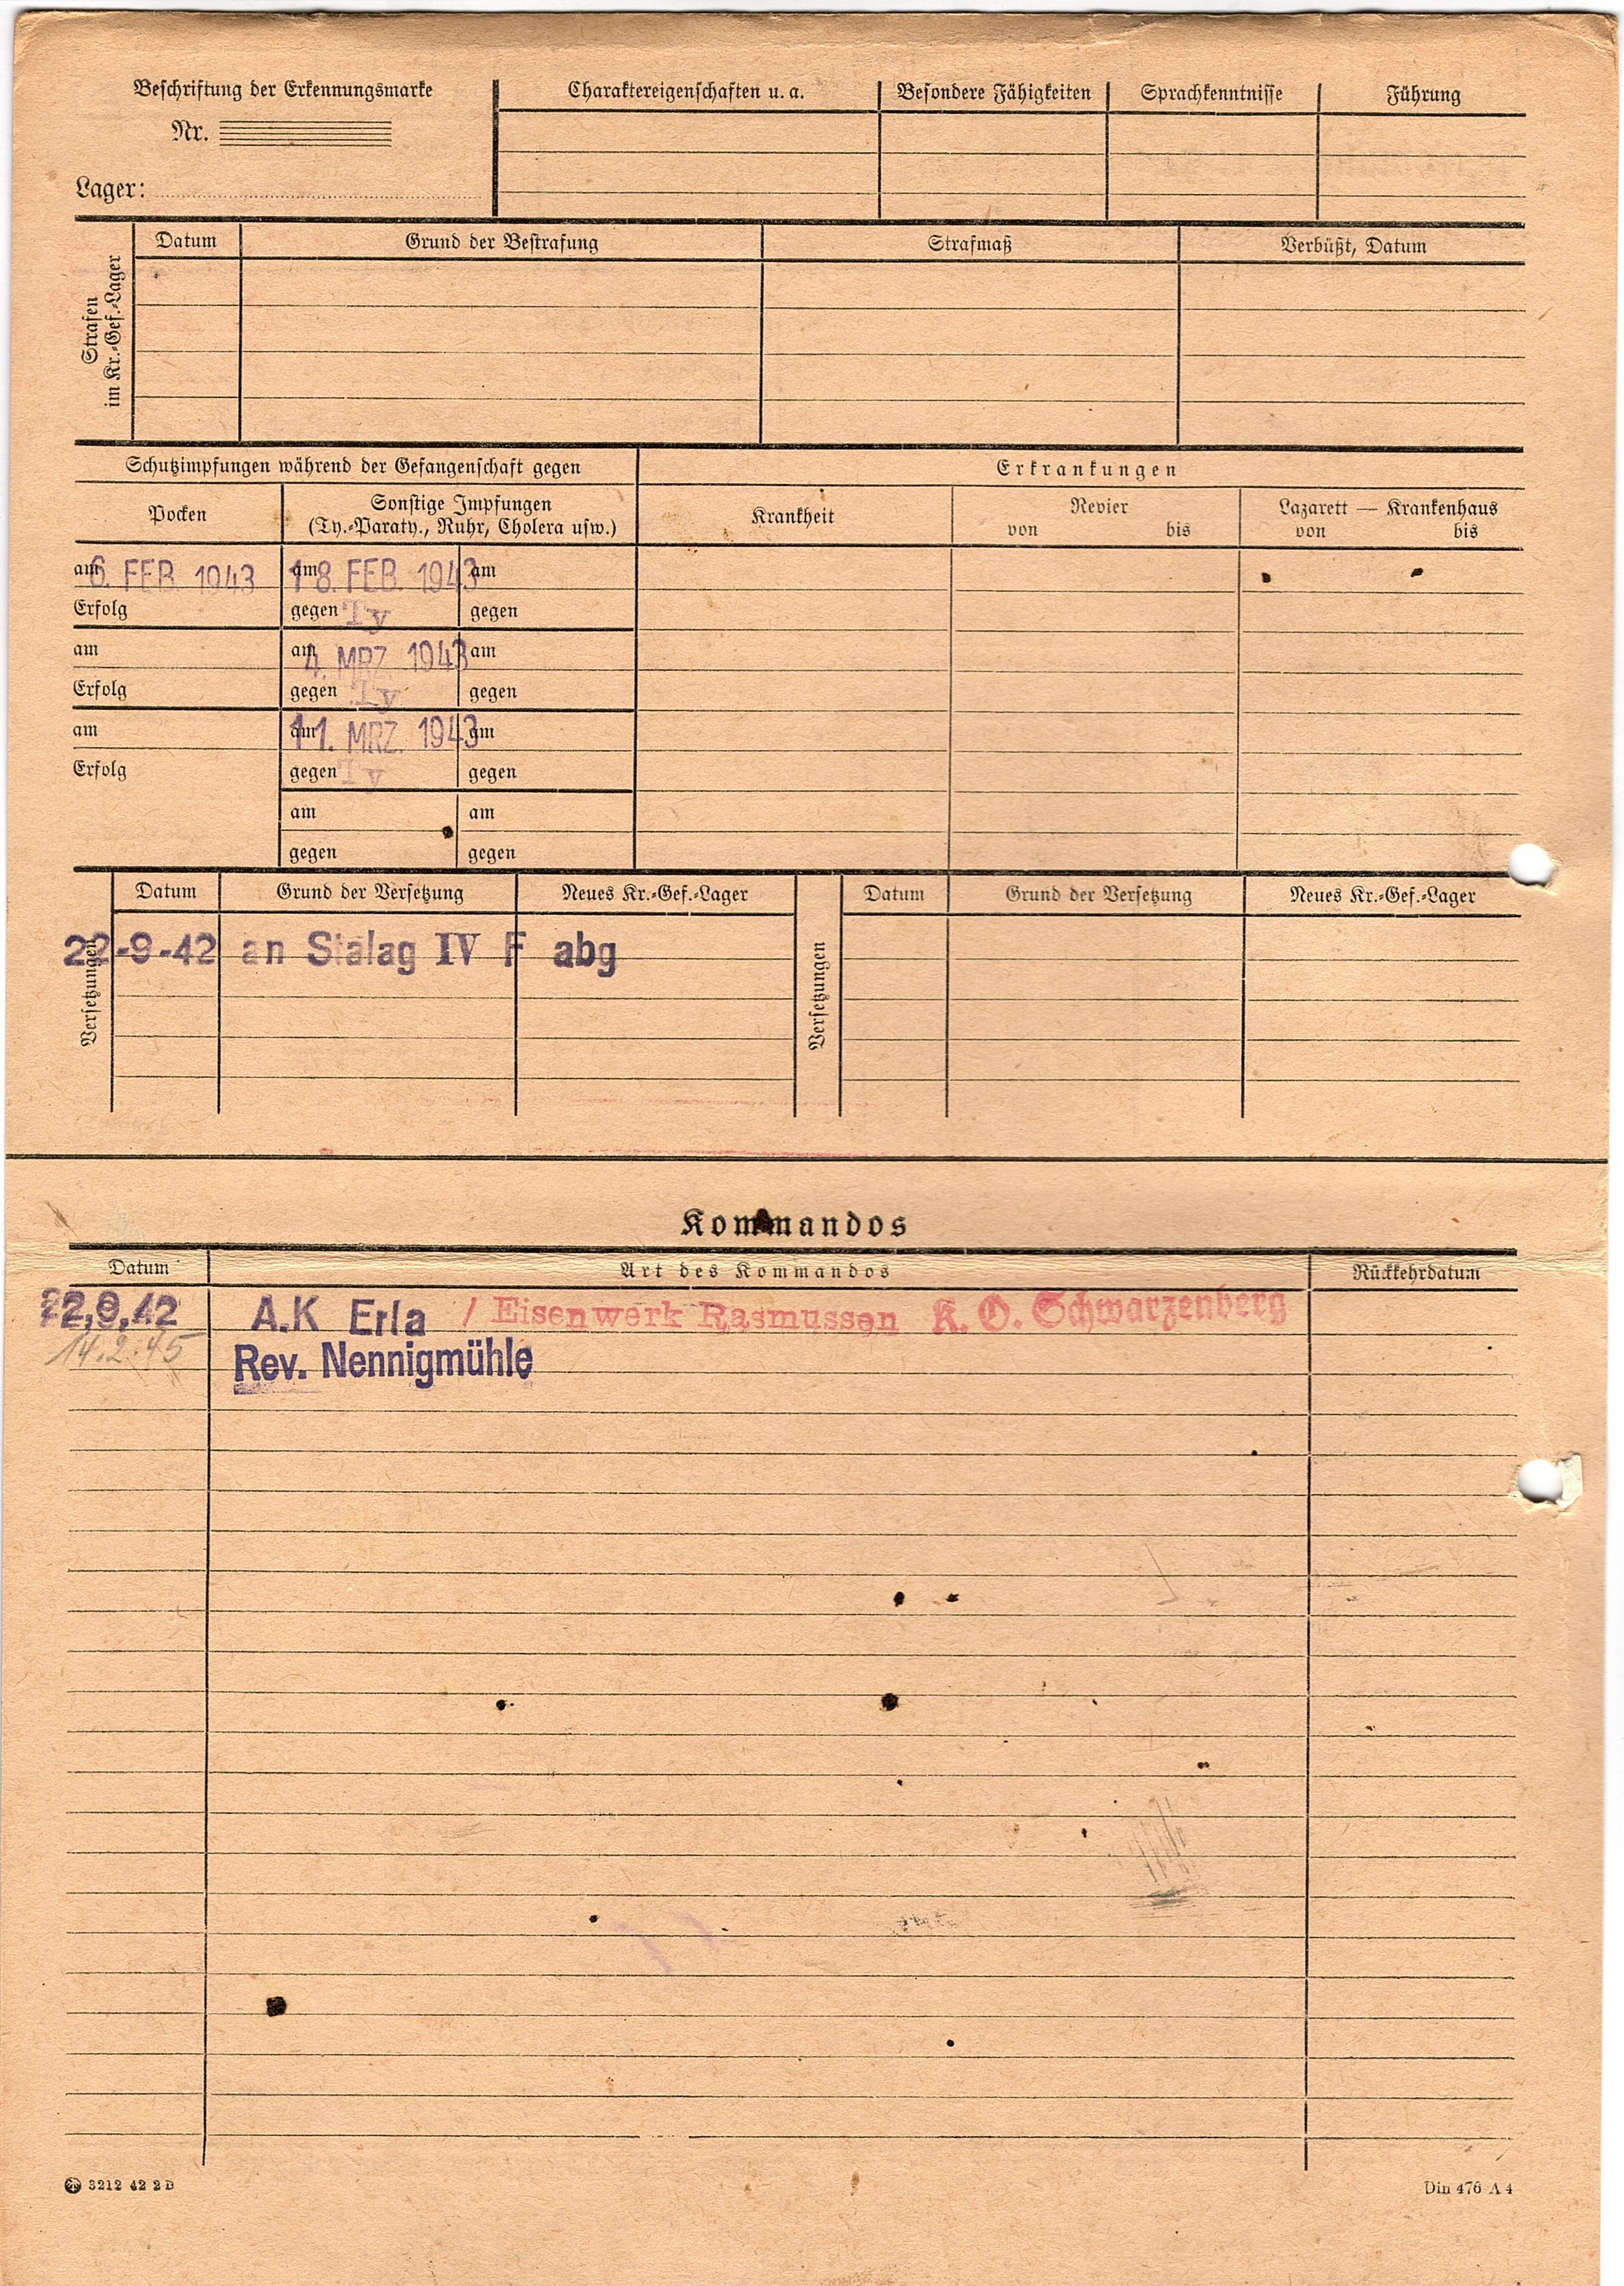 Beschriftung der Erkennungsmarke
Nr.
Lager:
Charaktereigenschaften u. a.
Besondere Fähigkeiten
Sprachkenntnisse
Führung
Strafen
im Kr.-Gef.-Lager
Datum
Grund der Bestrafung
Strafmaß
Verbüßt, Datum
Schutzimpfungen während der Gefangenschaft gegen
Erkrankungen
Pocken
Sonstige Impfungen
(Ty.-Paraty., Ruhr, Cholera usw.)
Krankheit
Revier
von bis
Lazarett — Krankenhaus
von bis
am 6. FEB. 1943 am 18. FEB. 1943 am
Erfolg gegen Ty gegen
am am 4. MRZ. 1943 am
Erfolg gegen Ty gegen
am am 11. MRZ. 1943 am
Erfolg gegen Ty gegen
am am
gegen gegen
Versetzungen
Datum Grund der Versetzung Neues Kr.-Gef.-Lager
22-9-42 an Stalag IV F abg
Versetzungen
Datum Grund der Versetzung Neues Kr.-Gef.-Lager
Kommandos
Datum Art des Kommandos Rückkehrdatum
22,9,42 A.K Erla / Eisenwerk Rasmussen K. O. Schwarzenberg
14.2.45 Rev. Nennigmühle
3212 42 2 B
Din 476 A 4